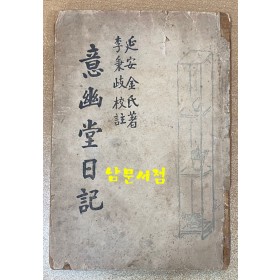 延安金氏著
李秉岐校註
意幽堂日記
남문서점